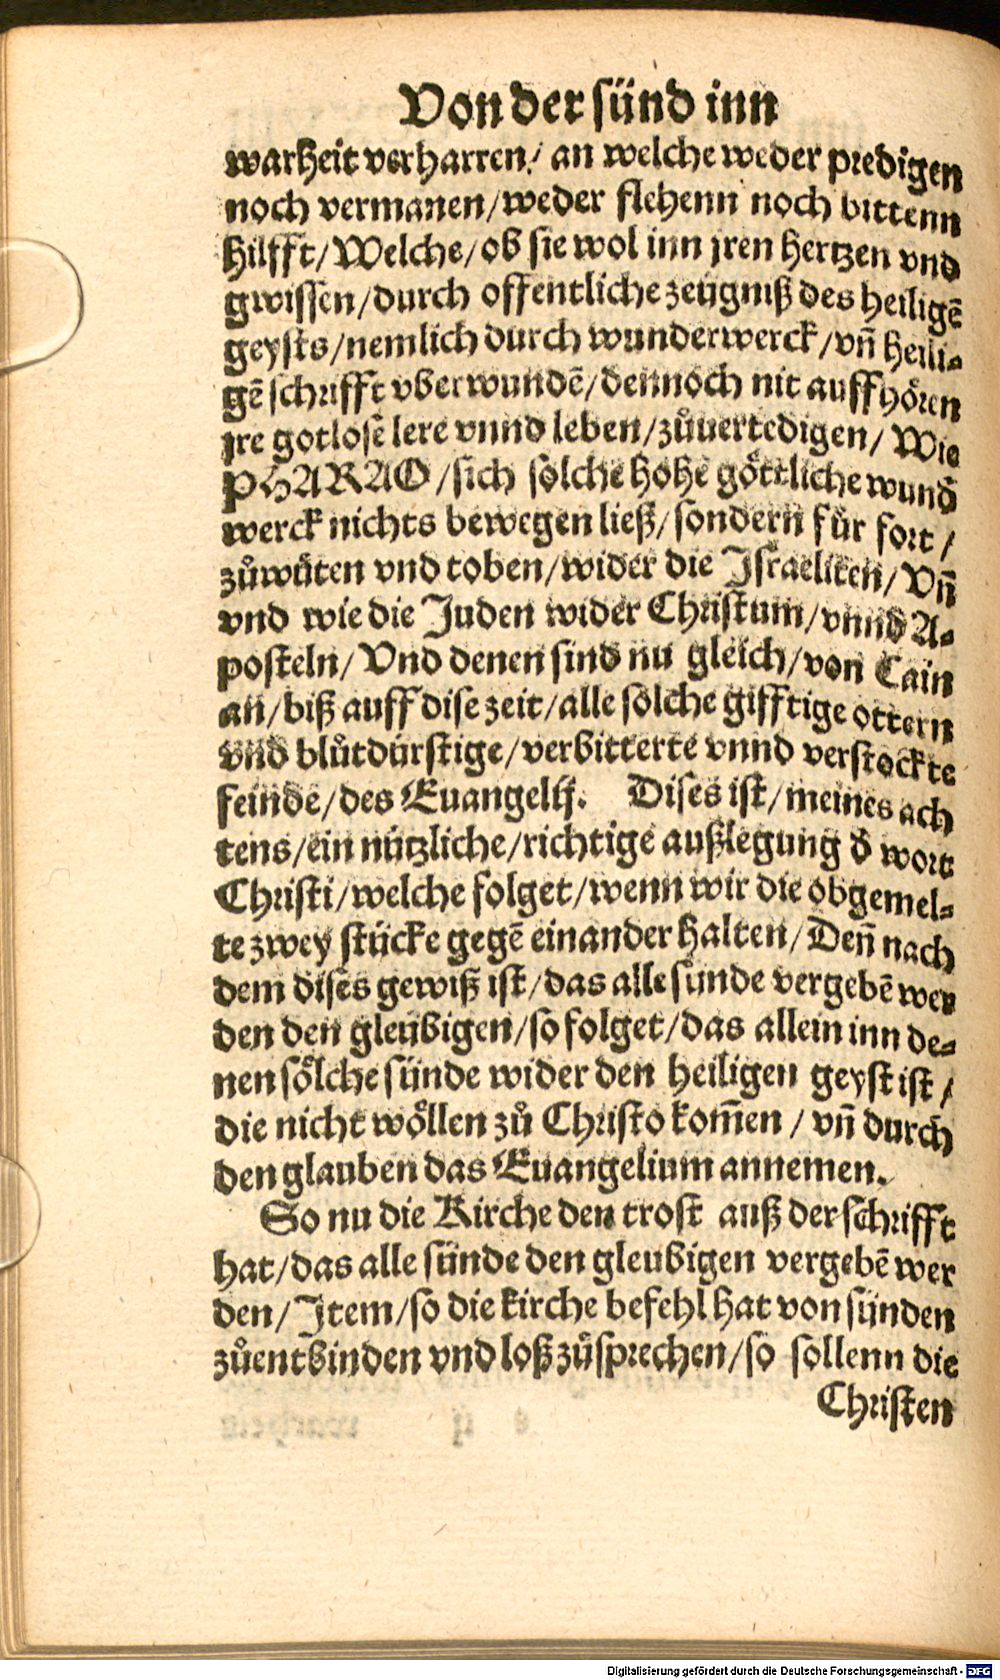 Von der sünd inn
warheit verharren/ an welche weder predigen
noch vermanen/weder flehenn noch bittenn
hilfft/Welche/ob sie wol inn jren hertzen vnd
gwissen/durch offentliche zeügniß des heiligẽ
geysts/nemlich durch wunderwerck/vñ heili-
gẽ schrifft vberwundẽ/dennoch nit auffhören
jre gotlosẽ lere vnnd leben/zůuertedigen/Wie
PHARAO/sich sölche hohe göttliche wund̃
werck nichts bewegen ließ/sondern fůr fort/
zůwüten vnd toben/wider die Israeliten/Vñ
vnd wie die Juden wider Christum/vnnd A-
posteln/Vnd denen sind nu gleich/von Cain
an/biß auff dise zeit/alle sölche gifftige ottern
vnd blůtdürstige/verbitterte vnnd verstockte
feinde/des Euangelij. Dises ist/meines ach
tens/ein nützliche/richtige außlegung d̃ wort
Christi/welche folget/wenn wir die obgemel-
te zwey stücke gegẽ einander halten/Deñ nach
dem dises gewiß ist/das alle sünde vergebẽ wer
den den gleubigen/so folget/das allein inn de-
nen sölche sünde wider den heiligen geyst ist/
die nicht wöllen zů Christo kom̃en/vñ durch
den glauben das Euangelium annemen.
So nu die Kirche den trost auß der schrifft
hat/das alle sünde den gleubigen vergebẽ wer
den/Item/so die kirche befehl hat von sünden
zůentbinden vnd loß zůsprechen/so sollenn die
Christen
Digitalisierung gefördert durch die Deutsche Forschungsgemeinschaft - DFG